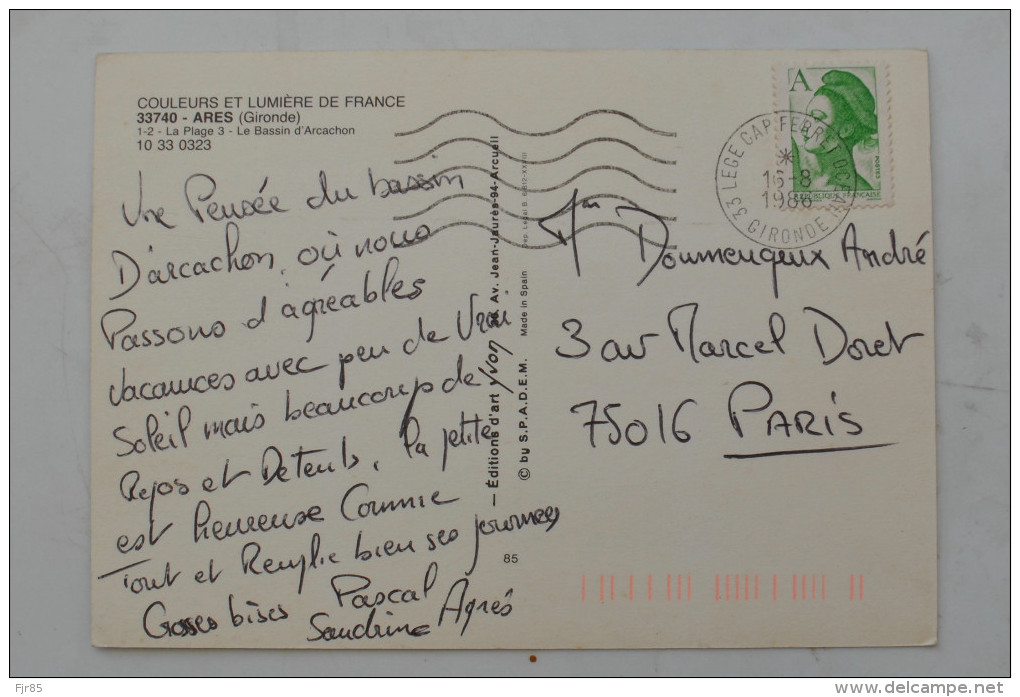 COULEURS ET LUMIÈRE DE FRANCE
33740 - ARES (Gironde)
1-2 - La Plage 3 - Le Bassin d'Arcachon
10 33 0323
Une Pensée du bassin
D'arcachon, où nous
Passons d'agréables
vacances avec peu de Vrai
Soleil mais beaucoup de
Repos et Detente, la petite
est heureuse Comme
Tout et Remplie bien ses journées
Grosses bises Pascal
Sandrine Agnès
— Éditions d'art yvon Av. Jean-Jaurès-94-Arcueil
© by S.P.A.D.E.M. Made in Spain
85
A
POSTES
RÉPUBLIQUE FRANÇAISE
33 LEGE CAP FERRET OCEAN
*
16-8
1986
GIRONDE
Doumengeux André
3 av Marcel Doret
75016 PARIS
Fjr85
www.delcampe.net